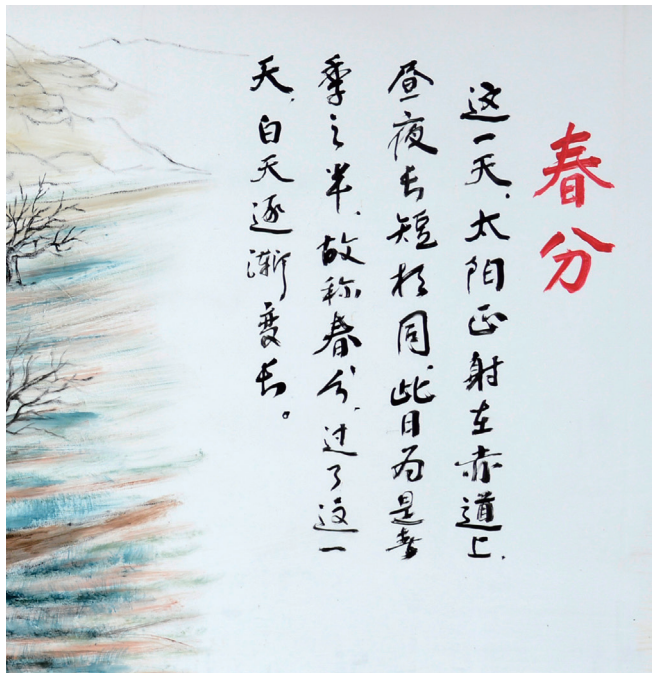 春分
这一天，太阳正射在赤道上，
昼夜长短相同，此日为是春
季之半，故称春分，过了这一
天，白天逐渐变长。